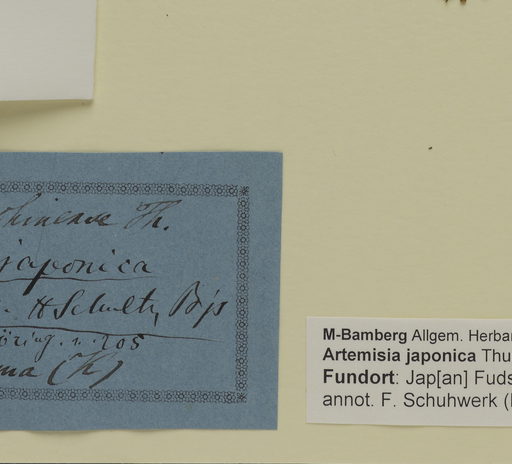 hinense Th.
japonica
H Schultz Bps
öring. n. 205
ma (H)
M-Bamberg Allgem. Herbar
Artemisia japonica Thu
Fundort: Jap[an] Fuds
annot. F. Schuhwerk (